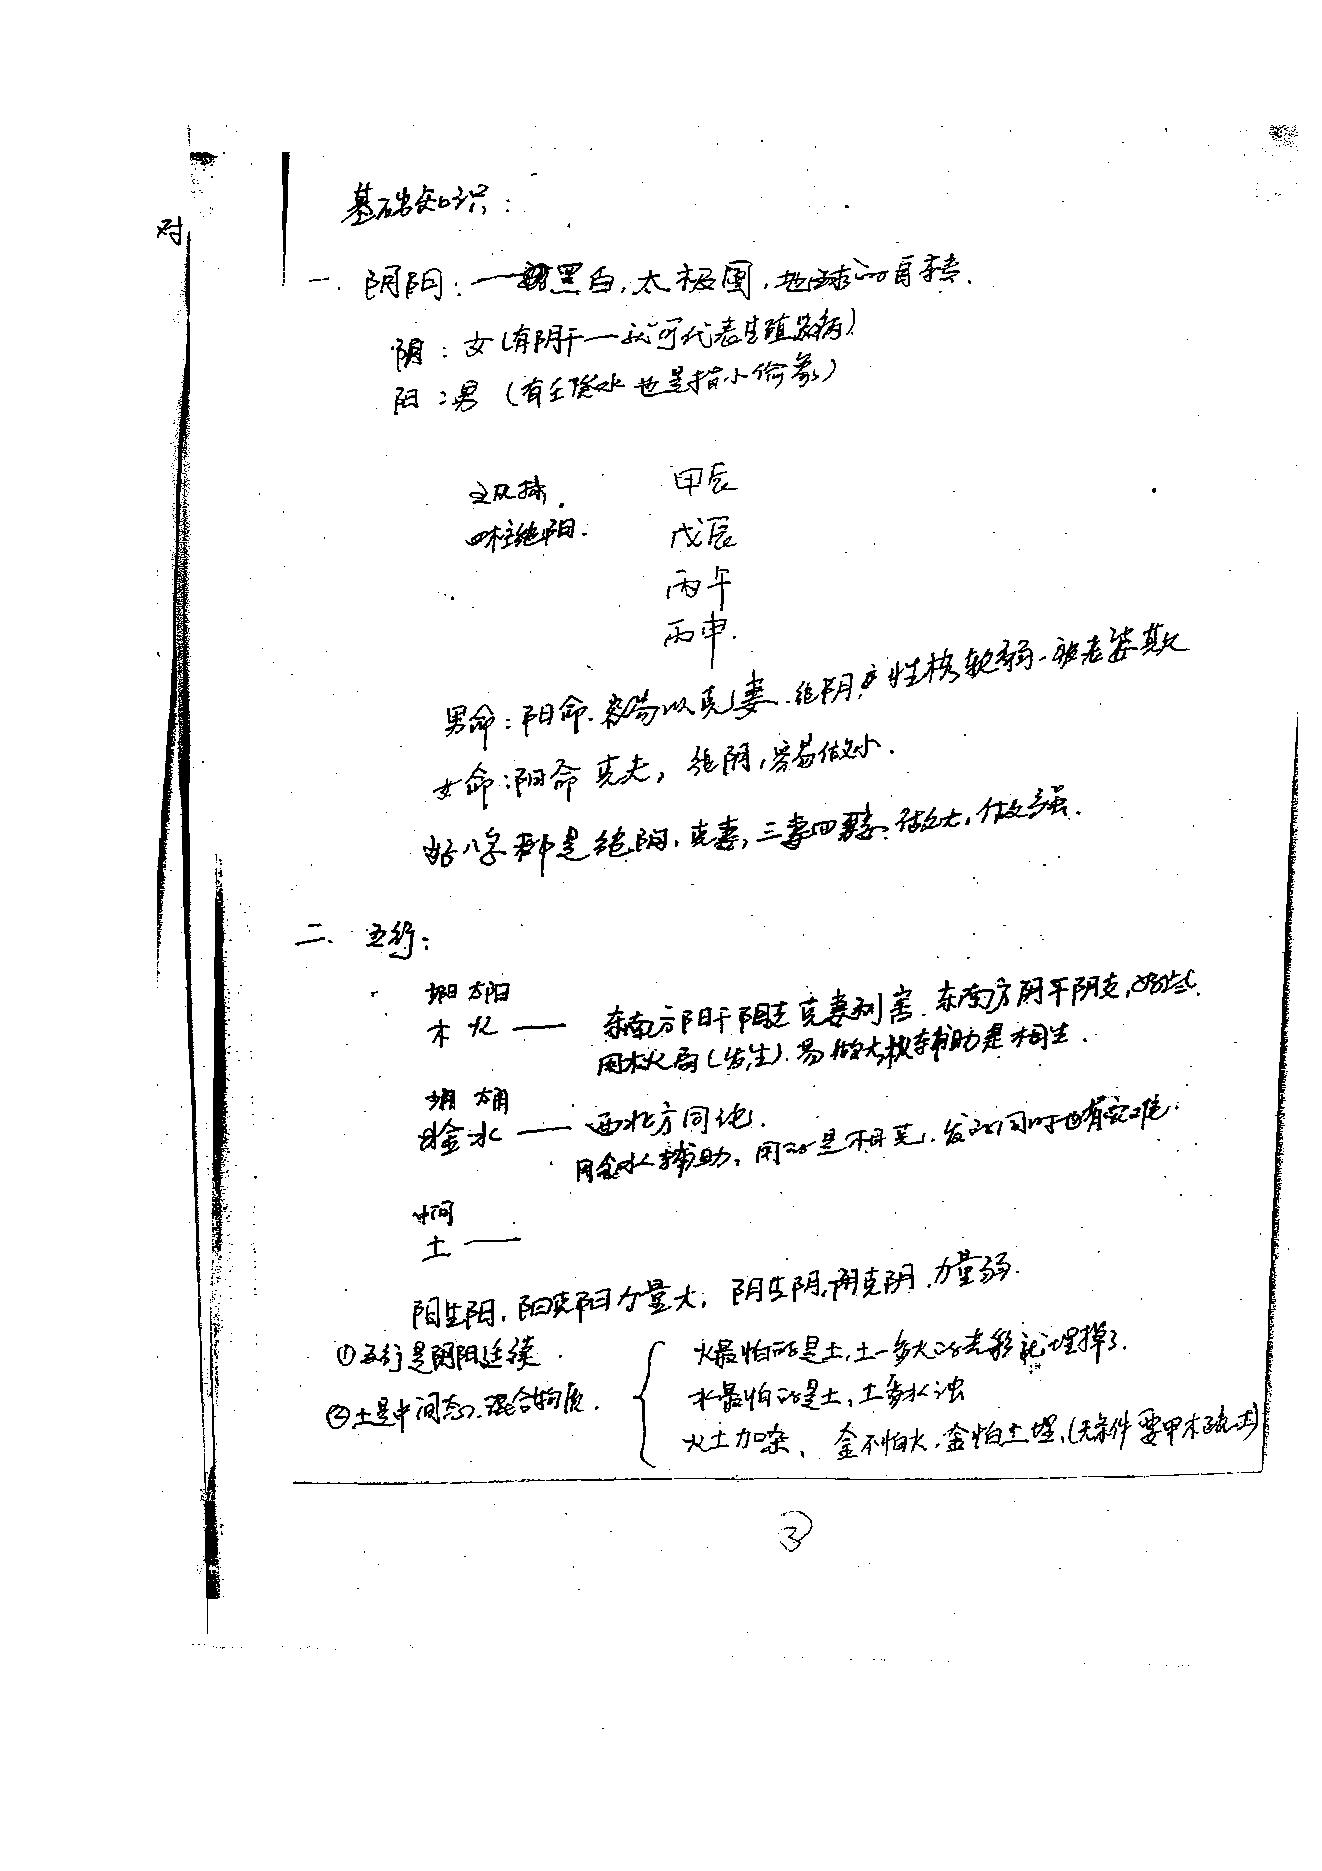 对
基础知识:
一. 阴阳: 一 黑白, 太极图, 地球的自转.
阴: 女(有阴干一就可代表生殖器病)
阳: 男 (有壬癸水也是指小偷象)
甲辰
四柱纯阳.
戊辰
丙午
丙申.
男命: 阳命.容易以克妻.纯阴,性格软弱-被老婆欺
女命: 阳命克夫, 纯阴,容易做小.
好八字都是纯阳,克妻,三妻四妾.做大,做强.
二. 五行:
少阳 太阳
木 火 — 东南方阳干阳支克妻利害.东南方阴干阴支,好些.
用木火局(发生).易做大权辅助是相生.
少阴 太阴
金水 — 西北方同纯.
用金水辅助,用的是相克.发的同时也有灾难.
中间
土 —
阳生阳,阳克阳力量大, 阴生阴,阴克阴.力量弱.
①五行是阴阳延续.
②土是中间态,混合物质.
火最怕的是土,土一多火的光彩就埋掉了.
水最怕的是土,土多水浊
火土加杂、金不怕火.金怕土埋,(无条件要甲木疏土)
③